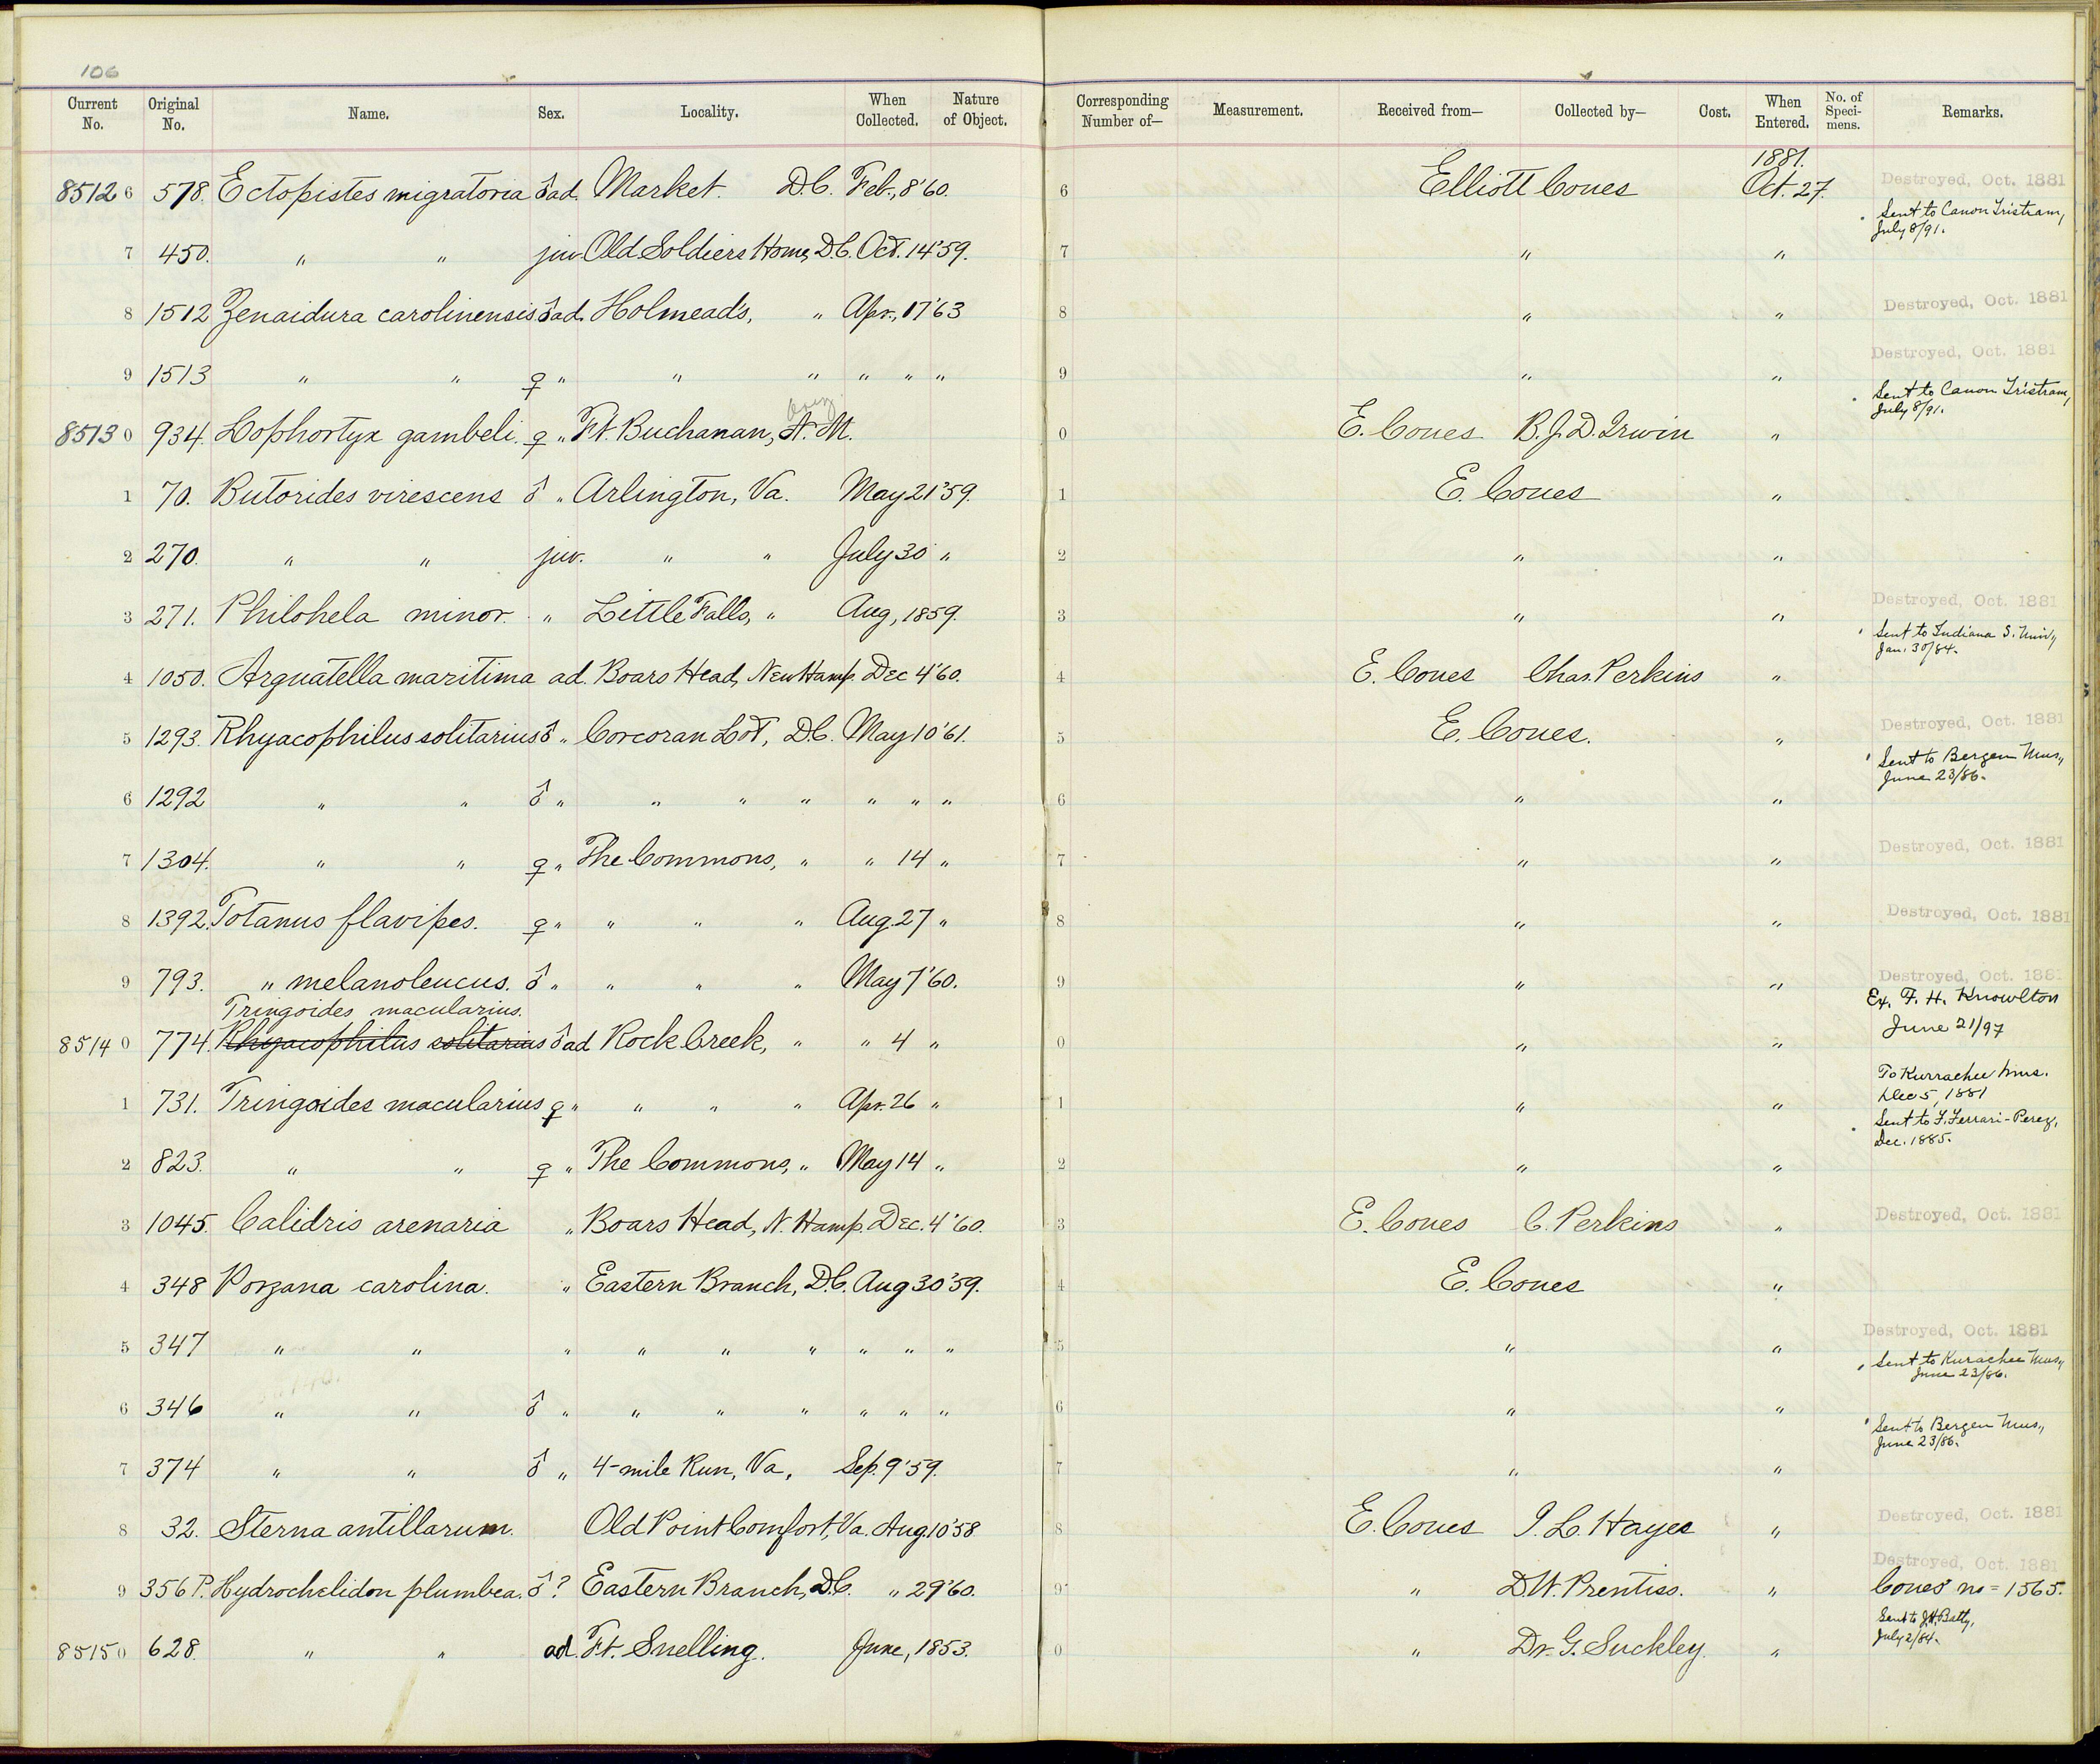 106
Current No. Original No. Name. Sex. Locality. When Collected. Nature of Object. Corresponding Number of— Measurement. Received from— Collected by— Cost. When Entered. No. of Specimens. Remarks.
85126 578. Ectopistes migratoria ♂ ad. Market. D.C. Feb., 8'60. 6 Elliott Coues 1881. Oct. 27. Destroyed, Oct. 1881
Sent to Canon Tristram, July 8/91.
7 450. " " juv. Old Soldiers Home, D.C. Oct. 14'59. 7 " "
8 1512 Zenaidura carolinensis ♂ ad. Holmead's, " Apr., 17'63 8 " " Destroyed, Oct. 1881
9 1513 " " ♀ " " " " " " 9 " " Destroyed, Oct. 1881
Sent to Canon Tristram, July 8/91.
Ariz.
85130 934. Lophortyx gambeli. ♀ " Ft. Buchanan, N. M. 0 E. Coues B.J.D. Irwin "
1 70. Butorides virescens ♂ " Arlington, Va. May 21'59. 1 E. Coues "
2 270. " " juv. " " July 30 " 2 " "
3 271. Philohela minor. " Little Falls, " Aug, 1859. 3 " " Destroyed, Oct. 1881
Sent to Indiana S. Univ., Jan. 30/84.
4 1050. Arquatella maritima ad. Boars Head, New Hamp. Dec 4'60. 4 E. Coues Chas. Perkins "
5 1293. Rhyacophilus solitarius ♂ " Corcoran Lot, D.C. May 10'61. 5 E. Coues. " Destroyed, Oct. 1881
Sent to Bergen Mus., June 23/86.
6 1292 " " ♂ " " " " " " " 6 " "
7 1304. " " ♀ " The Commons, " " 14 " 7 " " Destroyed, Oct. 1881
8 1392. Totanus flavipes. ♀ " " " " Aug. 27 " 8 " " Destroyed, Oct. 1881
9 793. " melanoleucus. ♂ " " " " May 7'60. 9 " " Destroyed, Oct. 1881
Ex. F. H. Knowlton June 21/97
Tringoides macularius.
85140 774. Rhyacophilus solitarius ♂ ad Rock Creek, " " 4 " 0 " "
1 731. Tringoides macularius ♀ " " " " Apr. 26 " 1 " " To Kurrachee Mus. Dec 5, 1881
Sent to F. Ferrari-Perez, Dec. 1885.
2 823. " " ♀ " The Commons, " May 14 " 2 " "
3 1045. Calidris arenaria " Boars Head, N. Hamp. Dec. 4'60. 3 E. Coues C. Perkins " Destroyed, Oct. 1881
4 348 Porzana carolina. " Eastern Branch, D.C. Aug 30'59. 4 E. Coues "
5 347 " " " " " " " " " 5 " " Destroyed, Oct. 1881
Sent to Kurachee Mus., June 23/86.
6 346 " " ♂ " " " " " " " 6 " "
Sent to Bergen Mus., June 23/86.
7 374 " " ♂ " 4-mile Run, Va, Sep. 9'59. 7 " "
8 32. Sterna antillarum. Old Point Comfort, Va. Aug 10'58 8 E. Coues I. L. Hayes " Destroyed, Oct. 1881
9 356 P. Hydrochelidon plumbea. ♂ ? Eastern Branch, D.C. " 29'60. 9 " D.W. Prentiss. " Destroyed, Oct. 1881
Coues' no = 1565.
85150 628. " " ad. Ft. Snelling. June, 1853. 0 " Dr. G. Suckley. " Sent to J.H. Batty, July 2/84.